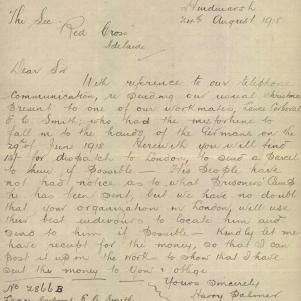 Hindmarsh
August 1918
The Sec
Red Cross
Adelaide
Dear Sir
With reference to our telephone
Communication, re sending our usual Christmas
Present to one of our workmates, Lance Corporal
E. C. Smith; who had the misfortune to
fall into the hands of the Germans on the
29th of June 1918 Herewith you will find
for dispatch to London, to send a Parcel
to him if Possible — His People have
not had notice as to what Prisoners Camp
he has been sent, but we have no doubt
that your organisation in London, will use
their best endevours to locate him and
send to him if Possible — Kindly let me
have receipt for the money, so that I can
Post it up on the works to show that I have
sent the money to You & oblige
Yours Sincerely
No 2866B
Harry Palmer
Lance Corporal E. C. Smith